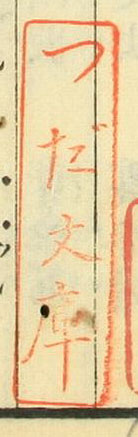 つだ文庫